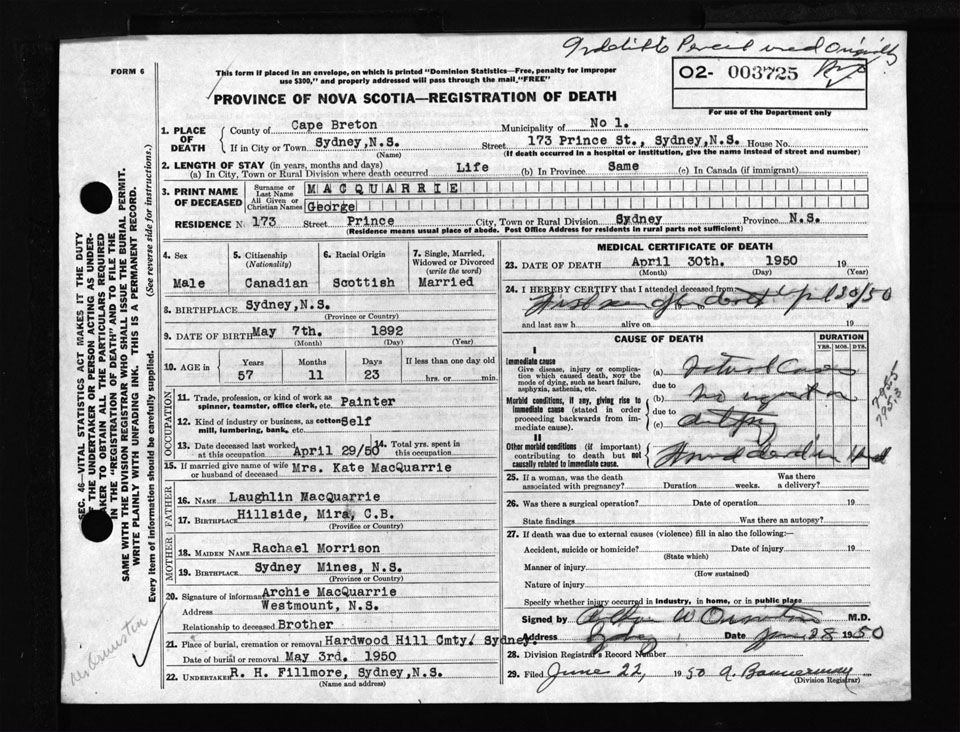 Percent used Originally
FORM 6
This form if placed in an envelope, on which is printed "Dominion Statistics—Free, penalty for improper
use $300," and properly addressed will pass through the mail "FREE"
O2- 003725
For use of the Department only
PROVINCE OF NOVA SCOTIA—REGISTRATION OF DEATH
1. PLACE OF DEATH { County of Cape Breton Municipality of No 1.
If in City or Town Sydney,N.S. Street 173 Prince St., Sydney,N.S. House No.
(Name) (If death occurred in a hospital or institution, give the name instead of street and number)
2. LENGTH OF STAY (in years, months and days)
(a) In City, Town or Rural Division where death occurred Life (b) In Province Same (c) In Canada (if immigrant)
3. PRINT NAME OF DECEASED { Surname or Last Name MACQUARRIE
All Given or Christian Names George
RESIDENCE N 173 Street Prince City, Town or Rural Division Sydney Province N.S.
(Residence means usual place of abode. Post Office Address for residents in rural parts not sufficient)
4. Sex Male
5. Citizenship (Nationality) Canadian
6. Racial Origin Scottish
7. Single, Married, Widowed or Divorced (write the word) Married
8. BIRTHPLACE Sydney,N.S.
(Province or Country)
9. DATE OF BIRTH May 7th. 1892
(Month) (Day) (Year)
10. AGE in Years 57 Months 11 Days 23 If less than one day old hrs. or min.
OCCUPATION
11. Trade, profession, or kind of work as spinner, teamster, office clerk, etc. Painter
12. Kind of industry or business, as cotton mill, lumbering, bank, etc. Self
13. Date deceased last worked at this occupation April 29/50 14. Total yrs. spent in this occupation
15. If married give name of wife or husband of deceased Mrs. Kate MacQuarrie
FATHER
16. NAME Laughlin MacQuarrie
17. BIRTHPLACE Hillside, Mira, C.B.
(Province or Country)
MOTHER
18. MAIDEN NAME Rachael Morrison
19. BIRTHPLACE Sydney Mines, N.S.
(Province or Country)
20. Signature of informant Archie MacQuarrie
Address Westmount, N.S.
Relationship to deceased Brother
21. Place of burial, cremation or removal Hardwood Hill Cmty. Sydney
Date of burial or removal May 3rd. 1950
22. UNDERTAKER R. H. Fillmore, Sydney,N.S.
(Name and address)
MEDICAL CERTIFICATE OF DEATH
23. DATE OF DEATH April 30th. 1950 19
(Month) (Day) (Year)
24. I HEREBY CERTIFY that I attended deceased from
30/50
and last saw h alive on 19
CAUSE OF DEATH
DURATION
YRS. MOS. DYS.
I
Immediate cause
Give disease, injury or complication which caused death, NOT the mode of dying, such as heart failure, asphyxia, asthenia, etc.
(a) Natural Causes
due to
Morbid conditions, if any, giving rise to immediate cause (stated in order proceeding backwards from immediate cause).
(b) no
due to
(c)
II
Other morbid conditions (if important) contributing to death but not causally related to immediate cause.
Found dead in
795.5
795.3
25. If a woman, was the death associated with pregnancy? Duration weeks. Was there a delivery?
26. Was there a surgical operation? Date of operation 19
State findings Was there an autopsy?
27. If death was due to external causes (violence) fill in also the following:—
Accident, suicide or homicide? Date of injury 19
(State which)
Manner of injury
(How sustained)
Nature of injury
Specify whether injury occurred in industry, in home, or in public place
Signed by M.D.
Address Sydney Date 28 1950
28. Division Registrar's Record Number
29. Filed June 22, 1950 A.
(Division Registrar)
SEC. 46—VITAL STATISTICS ACT MAKES IT THE DUTY
OF THE UNDERTAKER OR PERSON ACTING AS UNDER-
TAKER TO OBTAIN ALL THE PARTICULARS REQUIRED
IN THE "REGISTRATION OF DEATH" AND TO FILE THE
SAME WITH THE DIVISION REGISTRAR WHO SHALL ISSUE THE BURIAL PERMIT.
WRITE PLAINLY WITH UNFADING INK. THIS IS A PERMANENT RECORD.
Every item of information should be carefully supplied. (See reverse side for instructions.)